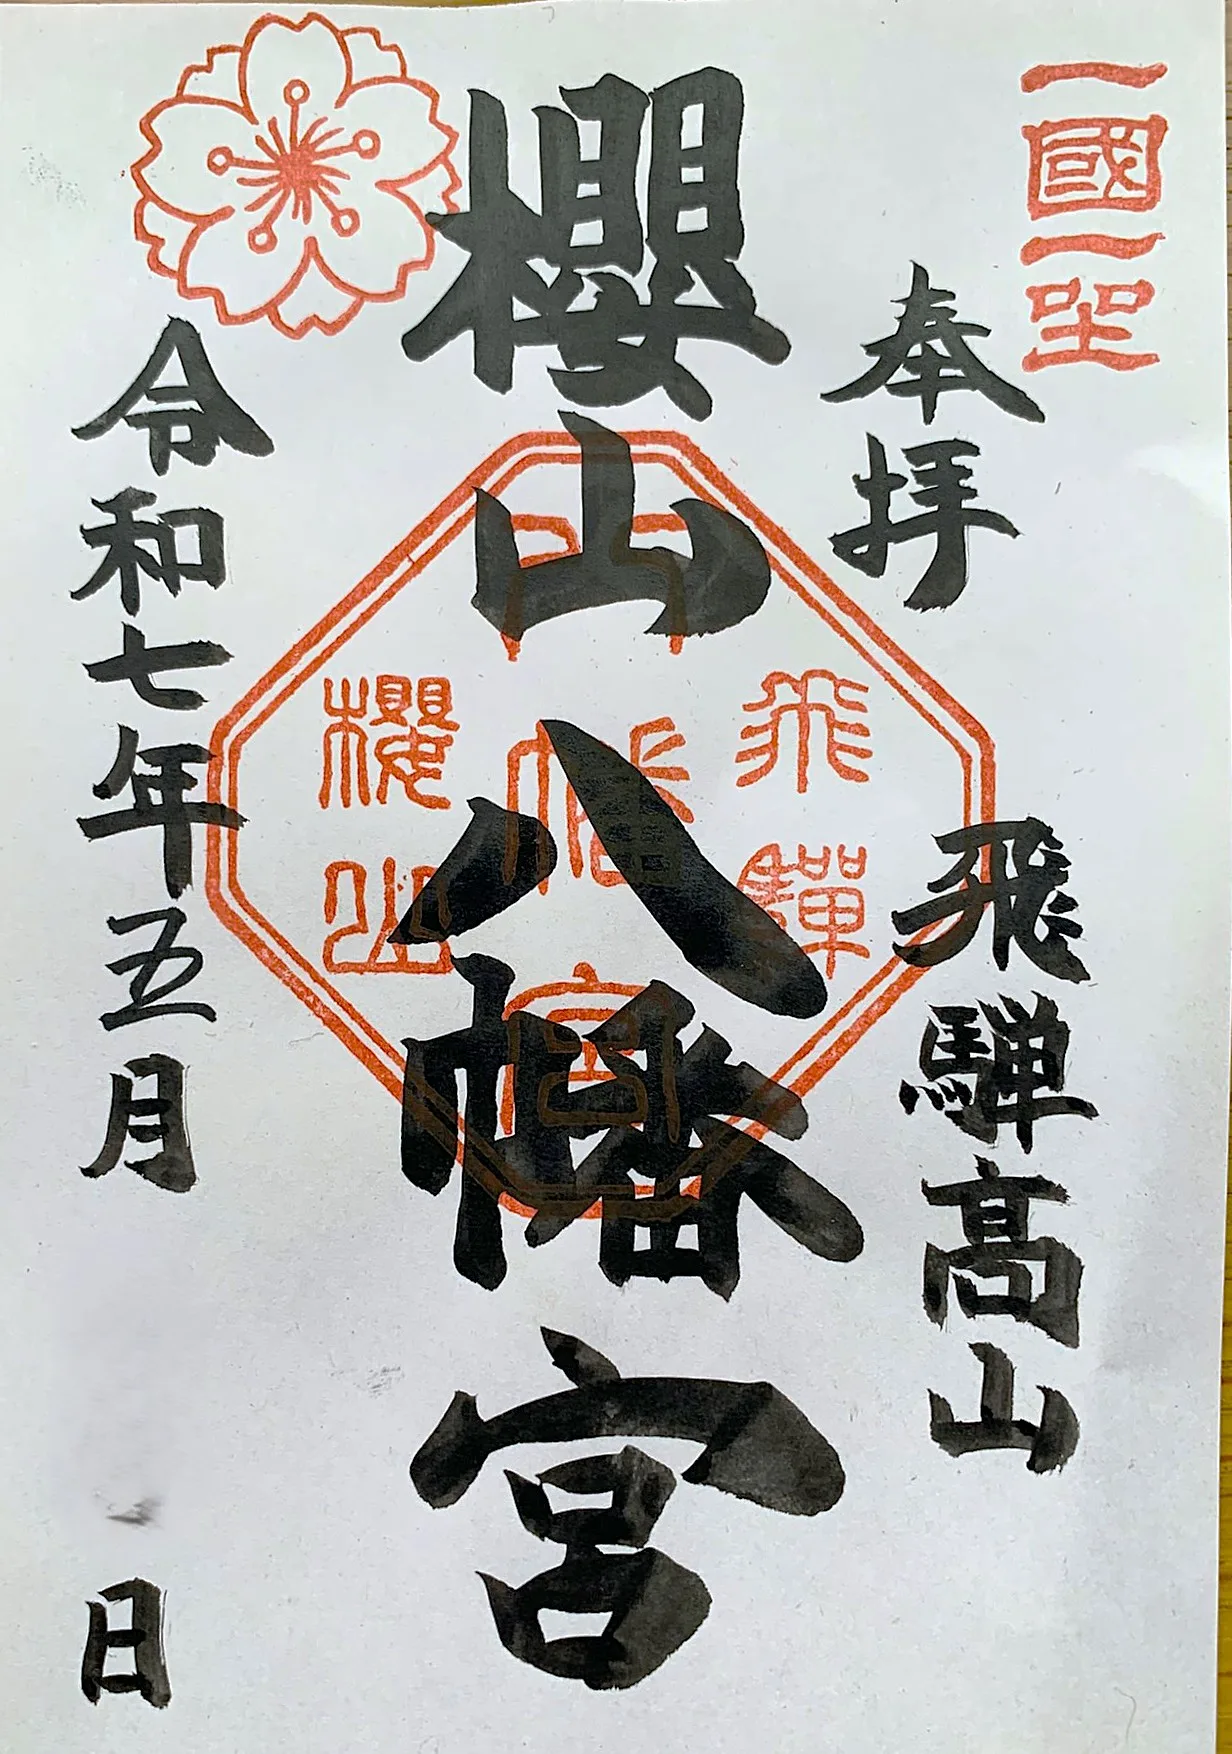 一國一坐
奉拝
飛騨高山
櫻山八幡宮
飛驒
八幡宮
櫻山
令和七年五月 日